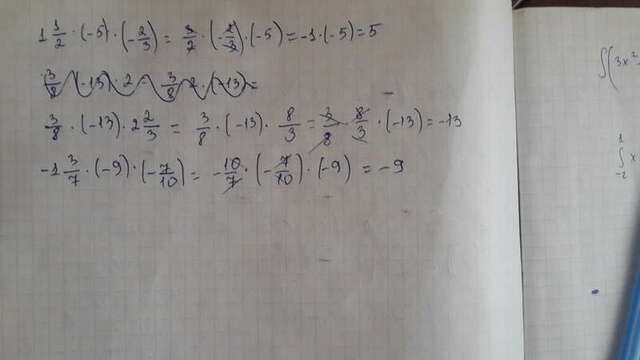 1 1/2 · (-5) · (-2/3) = 3/2 · (-2/3) · (-5) = -1 · (-5) = 5
3/8 · (-13) · 2 - 3/8 · 2 · (-13) =
3/8 · (-13) · 2 2/3 = 3/8 · (-13) · 8/3 = 3/8 · 8/3 · (-13) = -13
-1 3/7 · (-9) · (-7/10) = -10/7 · (-7/10) · (-9) = -9
∫(3x²
∫₋₂¹ x